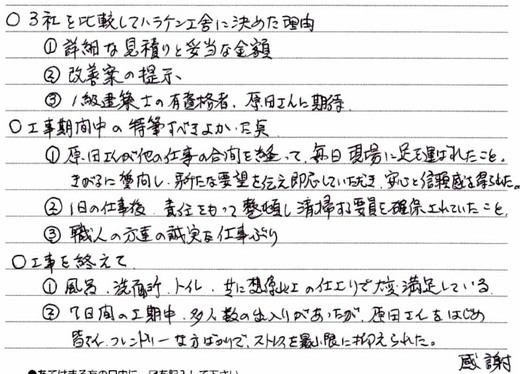 ○３社を比較してハラケン工舎に決めた理由
①詳細な見積りと妥当な金額
②改善案の提示
③１級建築士の有資格者、原田さんに期待
○工事期間中の特筆すべきよかった点
①原田さんが他の仕事の合間を縫って、毎日現場に足を運ばれたこと。
きがるに質問し、新たな要望を伝え即応していただき、安心と信頼感を得られた。
②１日の仕事後、責任をもって整頓し清掃する要員を確保されていたこと。
③職人の方達の誠実な仕事ぶり
○工事を終えて
①風呂、洗面所、トイレ、共に想像以上の仕上りで大変満足している。
②７日間の工期中、多人数の出入りがあったが、原田さんをはじめ
皆さん、フレンドリーな方ばかりで、ストレスを最小限に抑えられた。
感謝